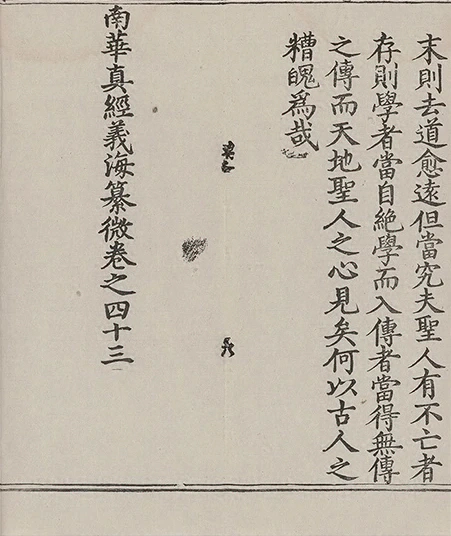 末則去道愈遠但當究夫聖人有不亡者
存則學者當自絶學而入傳者當得無傳
之傳而天地聖人之心見矣何以古人之
糟魄爲哉
南華真經義海纂微卷之四十三